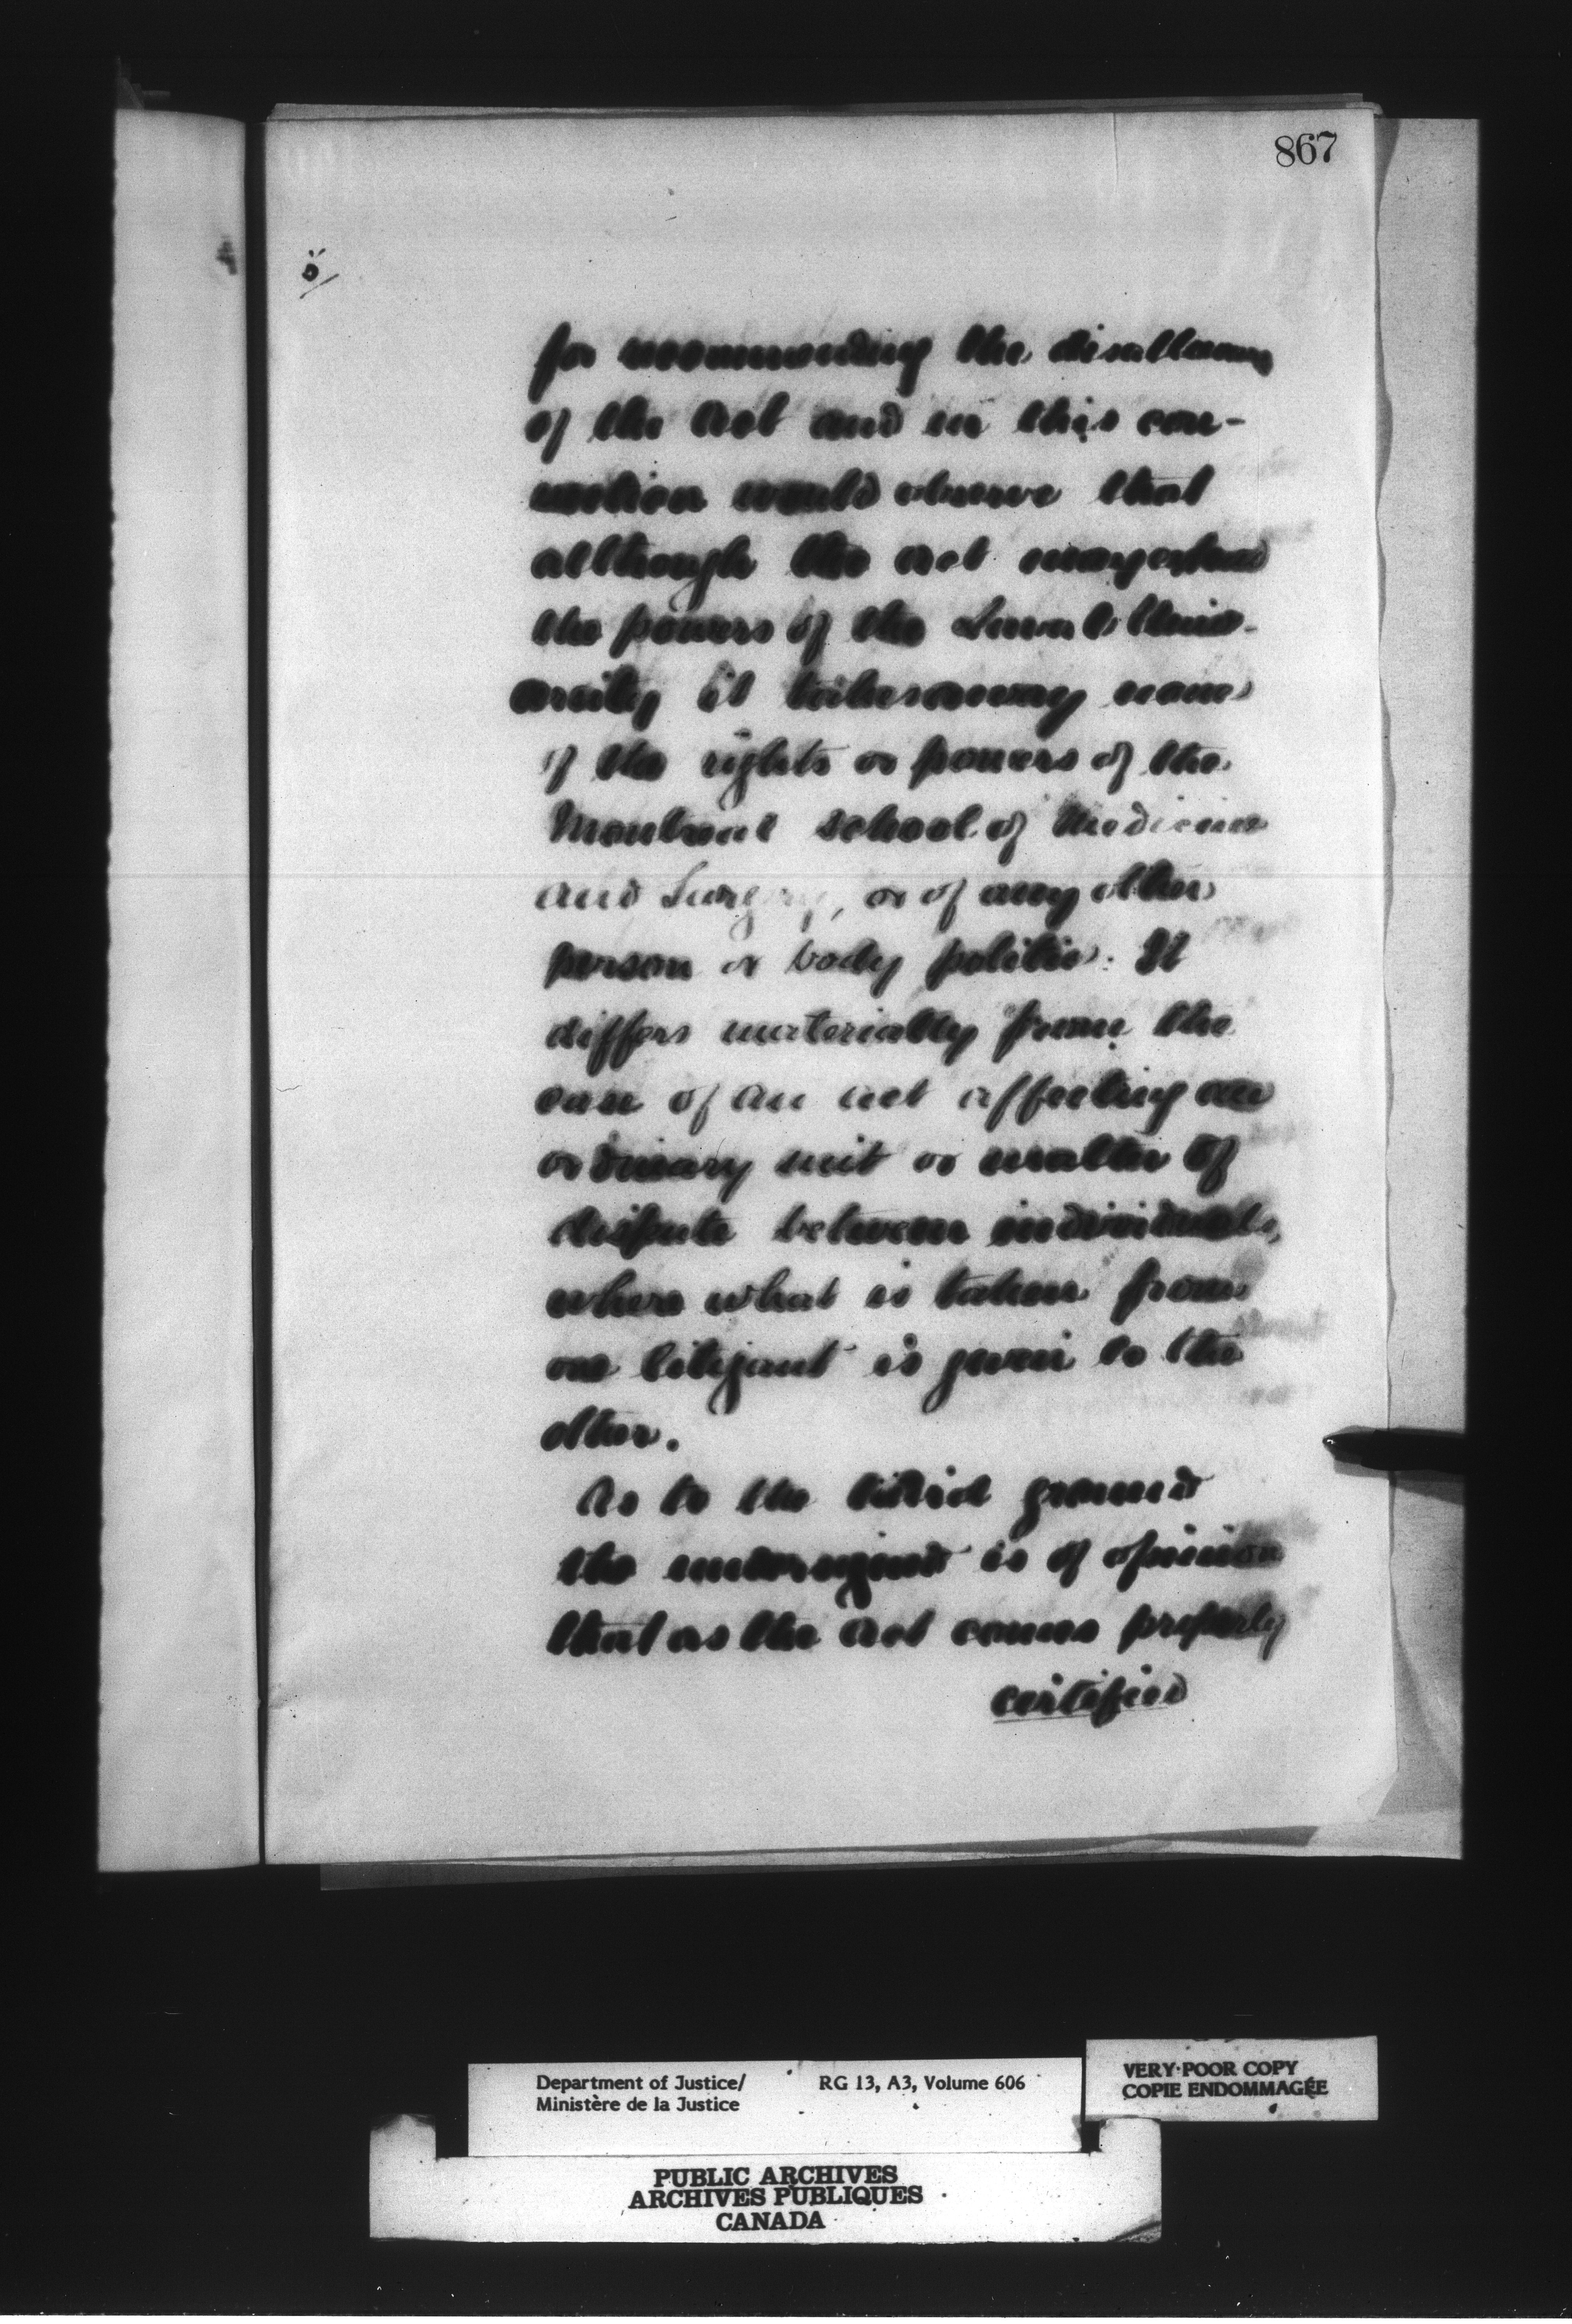 867
5/
for recommending the disallowance
of the Act and in this con-
nection would observe that
although the Act may extend
the powers of the Laval Univ-
ersity it takes away none
of the rights or powers of the
Montreal School of Medicine
and Surgery, or of any other
person or body politic. It
differs materially from the
case of an Act affecting an
ordinary suit or matter of
dispute between individuals,
where what is taken from
one litigant is given to the
other.
As to the third ground
the undersigned is of opinion
that as the Act comes properly
certified
Department of Justice/ RG 13, A3, Volume 606
Ministère de la Justice
VERY POOR COPY
COPIE ENDOMMAGÉE
PUBLIC ARCHIVES
ARCHIVES PUBLIQUES
CANADA